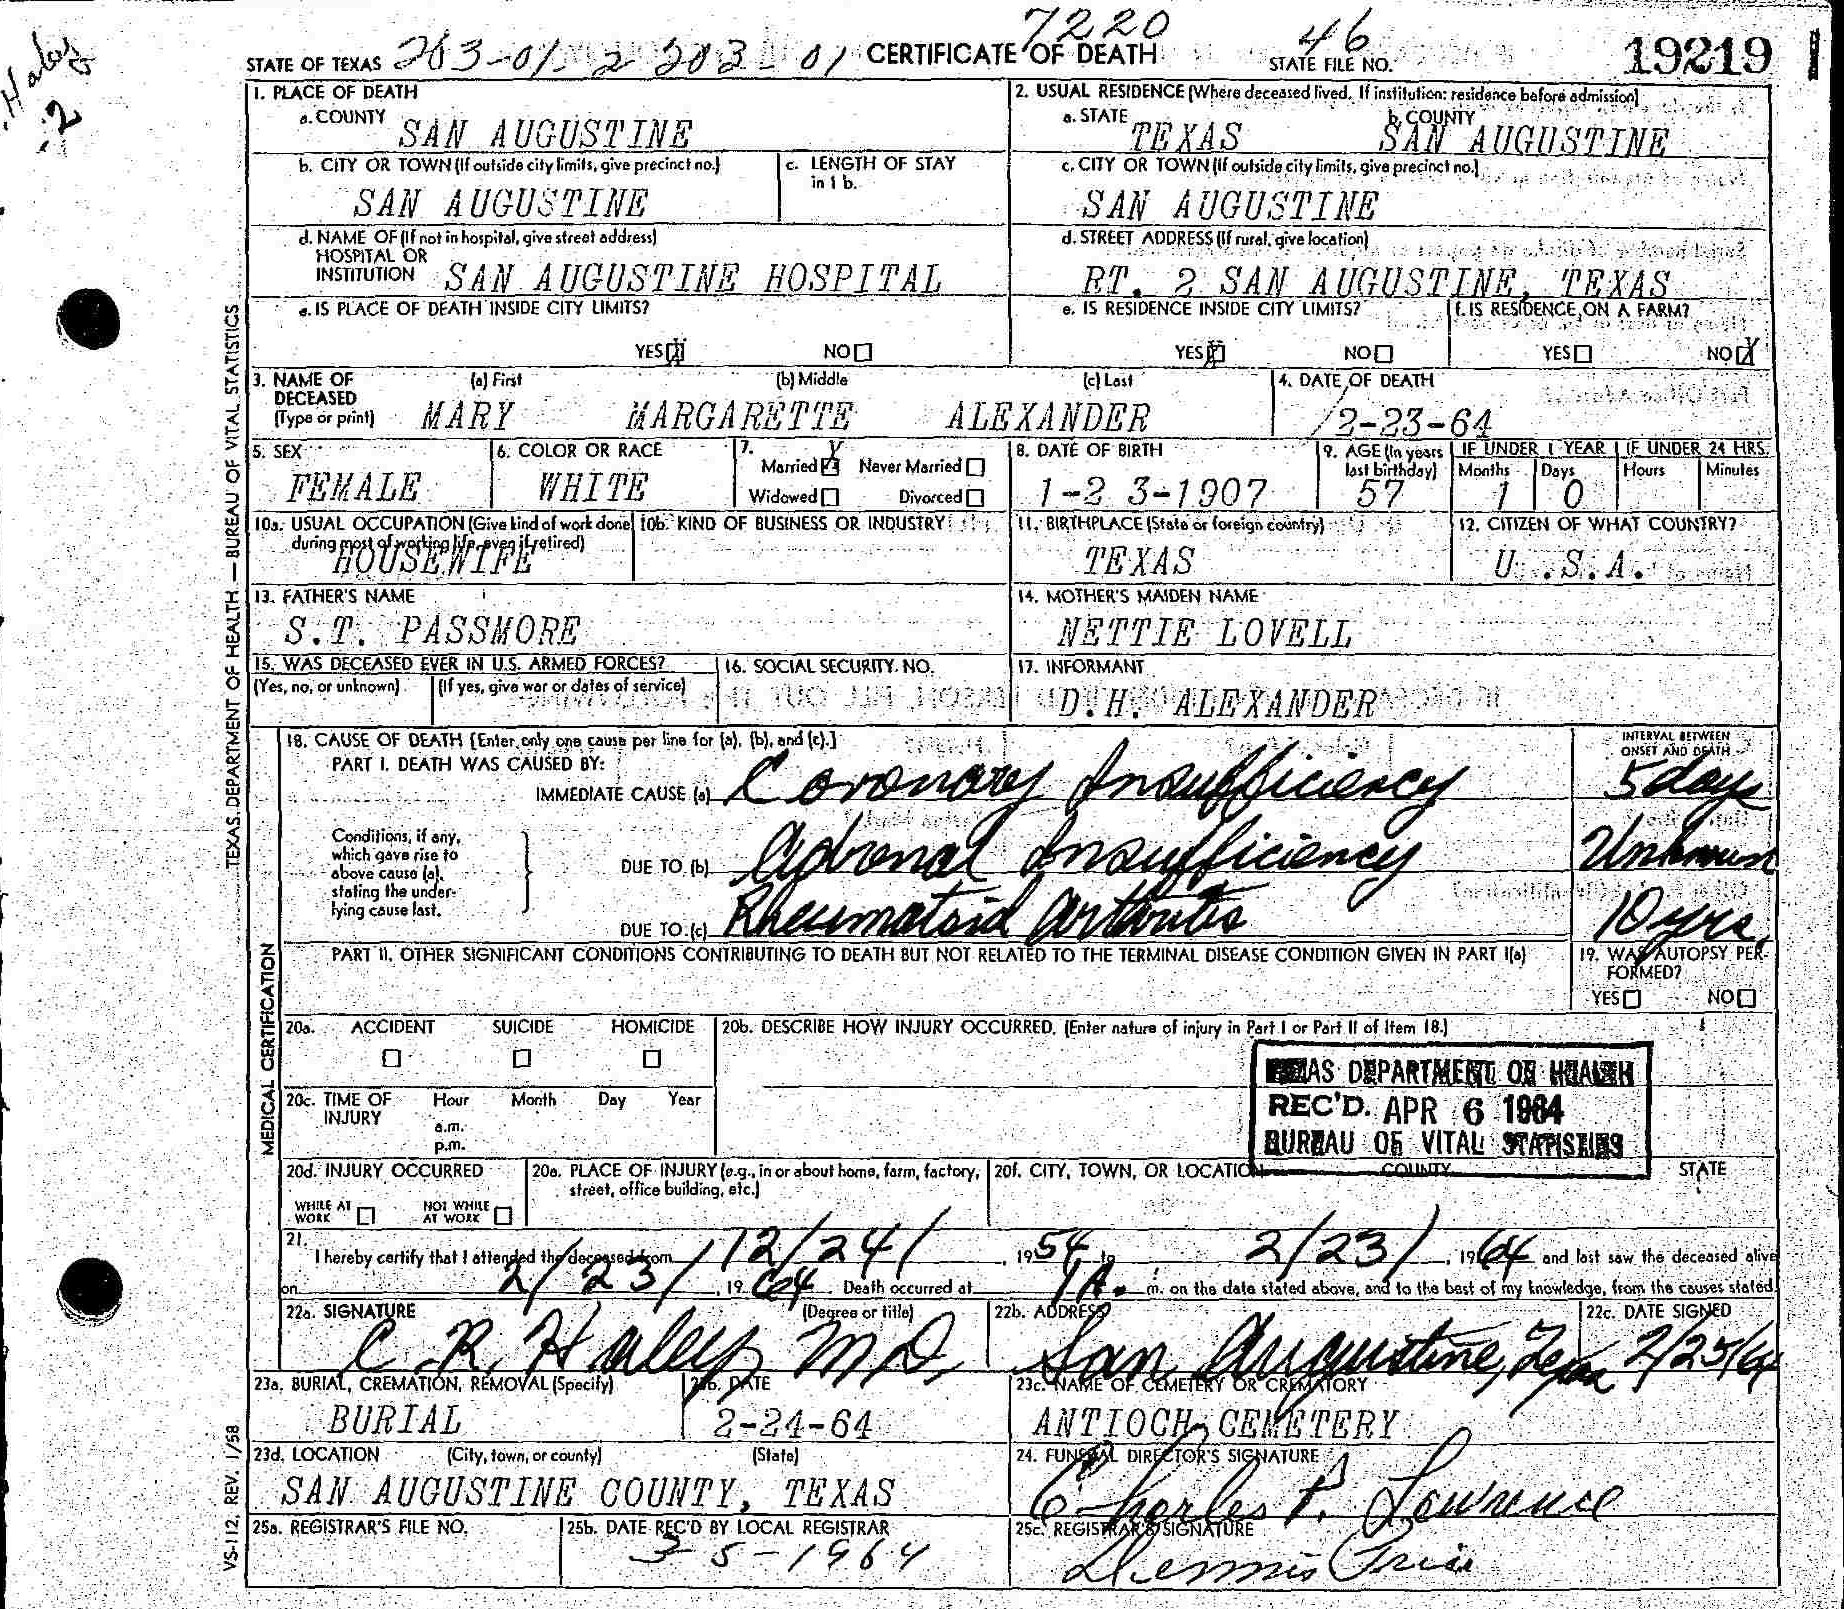 Haley
2
7220
46
STATE OF TEXAS 203-01-2 203-01 CERTIFICATE OF DEATH STATE FILE NO. 19219
1. PLACE OF DEATH
a. COUNTY SAN AUGUSTINE
2. USUAL RESIDENCE (Where deceased lived. If institution: residence before admission)
a. STATE TEXAS b. COUNTY SAN AUGUSTINE
b. CITY OR TOWN (If outside city limits, give precinct no.) SAN AUGUSTINE
c. LENGTH OF STAY in 1 b.
c. CITY OR TOWN (If outside city limits, give precinct no.) SAN AUGUSTINE
d. NAME OF (If not in hospital, give street address)
HOSPITAL OR
INSTITUTION SAN AUGUSTINE HOSPITAL
d. STREET ADDRESS (If rural, give location)
RT. 2 SAN AUGUSTINE, TEXAS
e. IS PLACE OF DEATH INSIDE CITY LIMITS?
YES X NO
e. IS RESIDENCE INSIDE CITY LIMITS?
YES X NO
f. IS RESIDENCE ON A FARM?
YES NO X
3. NAME OF DECEASED (Type or print)
(a) First MARY (b) Middle MARGARETTE (c) Last ALEXANDER
4. DATE OF DEATH
2-23-64
5. SEX
FEMALE
6. COLOR OR RACE
WHITE
7. Married X Never Married
Widowed Divorced
8. DATE OF BIRTH
1-2 3-1907
9. AGE (In years last birthday)
57
IF UNDER 1 YEAR IF UNDER 24 HRS.
Months 1 Days 0 Hours Minutes
10a. USUAL OCCUPATION (Give kind of work done during most of working life, even if retired)
HOUSEWIFE
10b. KIND OF BUSINESS OR INDUSTRY
11. BIRTHPLACE (State or foreign country)
TEXAS
12. CITIZEN OF WHAT COUNTRY?
U .S.A.
13. FATHER'S NAME
S.T. PASSMORE
14. MOTHER'S MAIDEN NAME
NETTIE LOVELL
15. WAS DECEASED EVER IN U.S. ARMED FORCES?
(Yes, no, or unknown) (If yes, give war or dates of service)
16. SOCIAL SECURITY NO.
17. INFORMANT
D.H. ALEXANDER
18. CAUSE OF DEATH [Enter only one cause per line for (a), (b), and (c).]
PART I. DEATH WAS CAUSED BY:
INTERVAL BETWEEN ONSET AND DEATH
IMMEDIATE CAUSE (a) Coronary Insufficiency 5 days
Conditions, if any, which gave rise to above cause (a), stating the under-lying cause last.
DUE TO (b) Adrenal Insufficiency Unknown
DUE TO (c) Rheumatoid Arthritis 10 yrs.
PART II. OTHER SIGNIFICANT CONDITIONS CONTRIBUTING TO DEATH BUT NOT RELATED TO THE TERMINAL DISEASE CONDITION GIVEN IN PART I(a)
19. WAS AUTOPSY PER-FORMED?
YES NO
20a. ACCIDENT SUICIDE HOMICIDE
20b. DESCRIBE HOW INJURY OCCURRED. (Enter nature of injury in Part I or Part II of Item 18.)
20c. TIME OF INJURY Hour Month Day Year
a.m.
p.m.
TEXAS DEPARTMENT OF HEALTH
REC'D. APR 6 1964
BUREAU OF VITAL STATISTICS
20d. INJURY OCCURRED
WHILE AT WORK NOT WHILE AT WORK
20e. PLACE OF INJURY (e.g., in or about home, farm, factory, street, office building, etc.)
20f. CITY, TOWN, OR LOCATION COUNTY STATE
21. I hereby certify that I attended the deceased from 12/24/, 1954 to 2/23/, 1964 and last saw the deceased alive
on 2/23/, 1964. Death occurred at 1 A. m. on the date stated above, and to the best of my knowledge, from the causes stated.
22a. SIGNATURE (Degree or title)
C. R. Haley M.D.
22b. ADDRESS
San Augustine, Texas
22c. DATE SIGNED
2/25/64
23a. BURIAL, CREMATION, REMOVAL (Specify)
BURIAL
23b. DATE
2-24-64
23c. NAME OF CEMETERY OR CREMATORY
ANTIOCH CEMETERY
23d. LOCATION (City, town, or county) (State)
SAN AUGUSTINE COUNTY, TEXAS
24. FUNERAL DIRECTOR'S SIGNATURE
Charles P. Lawrence
25a. REGISTRAR'S FILE NO.
25b. DATE REC'D BY LOCAL REGISTRAR
3-5-1964
25c. REGISTRAR'S SIGNATURE
Dennis Price
TEXAS DEPARTMENT OF HEALTH — BUREAU OF VITAL STATISTICS
MEDICAL CERTIFICATION
VS-112, REV. 1/58